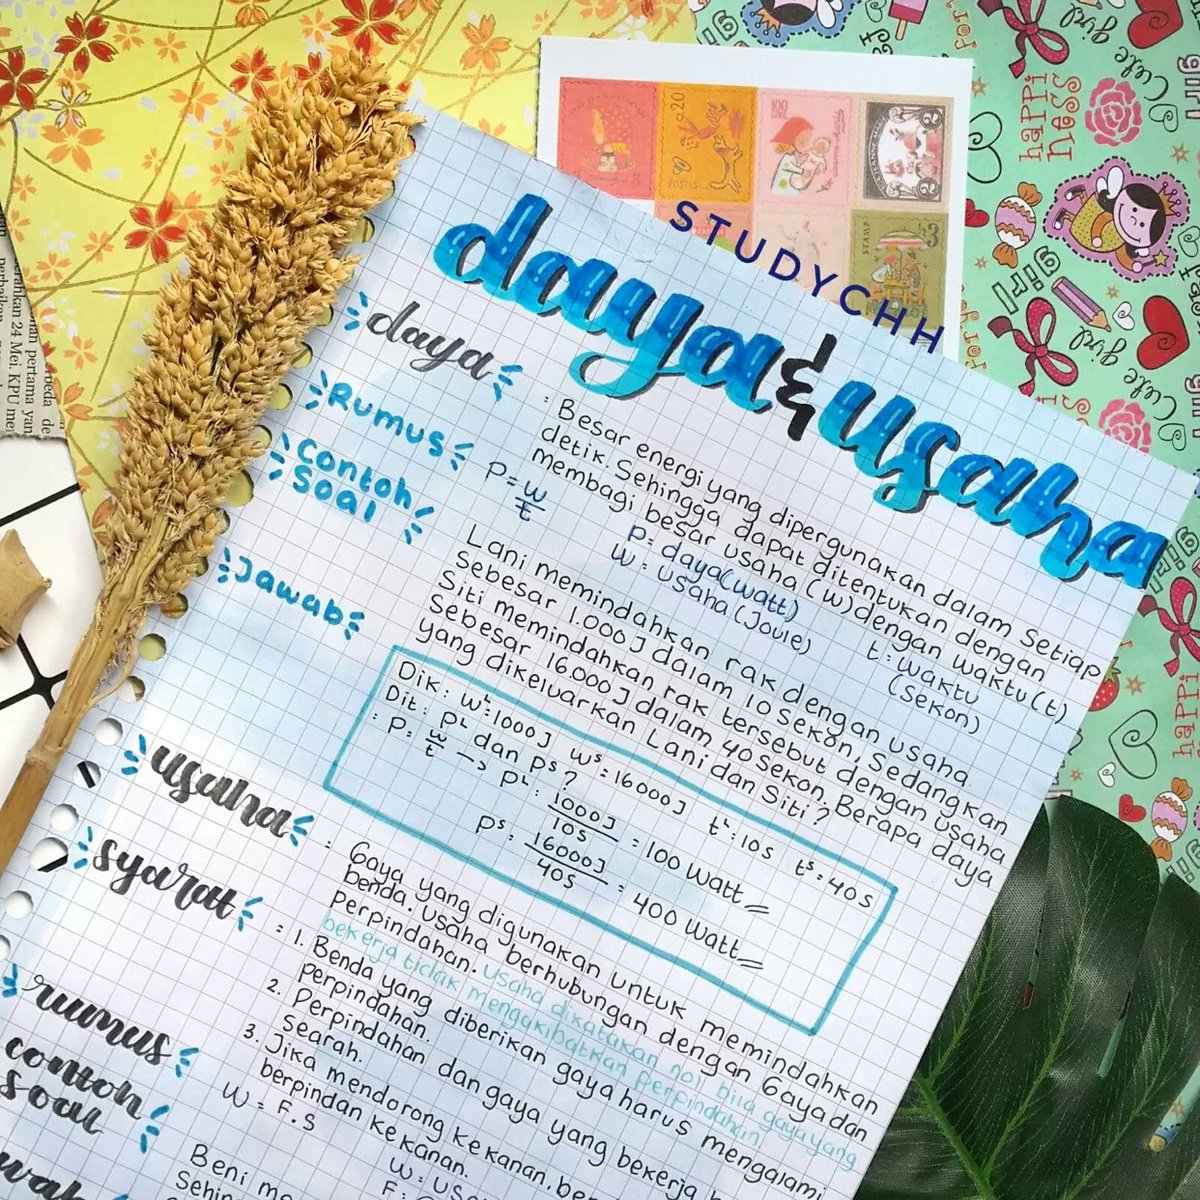 daya & usaha
STUDYCHH
daya
: Besar energi yang dipergunakan dalam setiap
detik. Sehingga dapat ditentukan dengan
membagi besar usaha (w) dengan waktu (t)
Rumus
P = w
t
P = daya (watt)
W = usaha (Joule)
t : waktu
(sekon)
Contoh
Soal
Lani memindahkan rak dengan usaha
sebesar 1.000 J dalam 10 sekon, sedangkan
Siti memindahkan rak tersebut dengan usaha
sebesar 16.000 J dalam 40 sekon, Berapa daya
yang dikeluarkan Lani dan Siti?
Jawab
Dik : W^L = 1000 J W^S = 16000 J t^L : 10 s t^S : 40 s
Dit : P^L dan P^S ?
: P = w
t → P^L : 1000 J
10 s = 100 watt
P^S : 16000 J
40 s = 400 watt
usaha
: Gaya yang digunakan untuk memindahkan
benda. Usaha berhubungan dengan Gaya dan
perpindahan. usaha dikatakan nol bila gaya yang
bekerja tidak mengakibatkan perpindahan
syarat
: 1. Benda yang diberikan gaya harus mengalami
perpindahan.
2. Perpindahan dan gaya yang bekerja
searah.
3. Jika mendorong kekanan, ber
berpindah kekanan.
rumus
W = F.S
W = usa
F :
contoh
soal
Beni me
Sehin
wab
haPPi
ness
Cute girl
girl
POSTES
STAMP
100
.20
perbaikan
erahkan 24 Mei, KPU
pertama yan